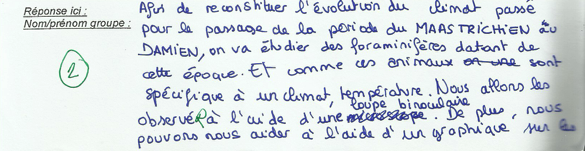 Réponse ici :
Nom/prénom groupe :
2
Afin de reconstituer l'évolution du climat passé
pour le passage de la période du MAASTRICHIEN au
DAMIEN, on va étudier des foraminifères datant de
cette époque. Et comme ces animaux on une sont
spécifique à un climat, température. Nous allons les
loupe binoculaire
observéR à l'aide d'une microscope. De plus, nous
pouvons nous aider à l'aide d'un graphique sur les